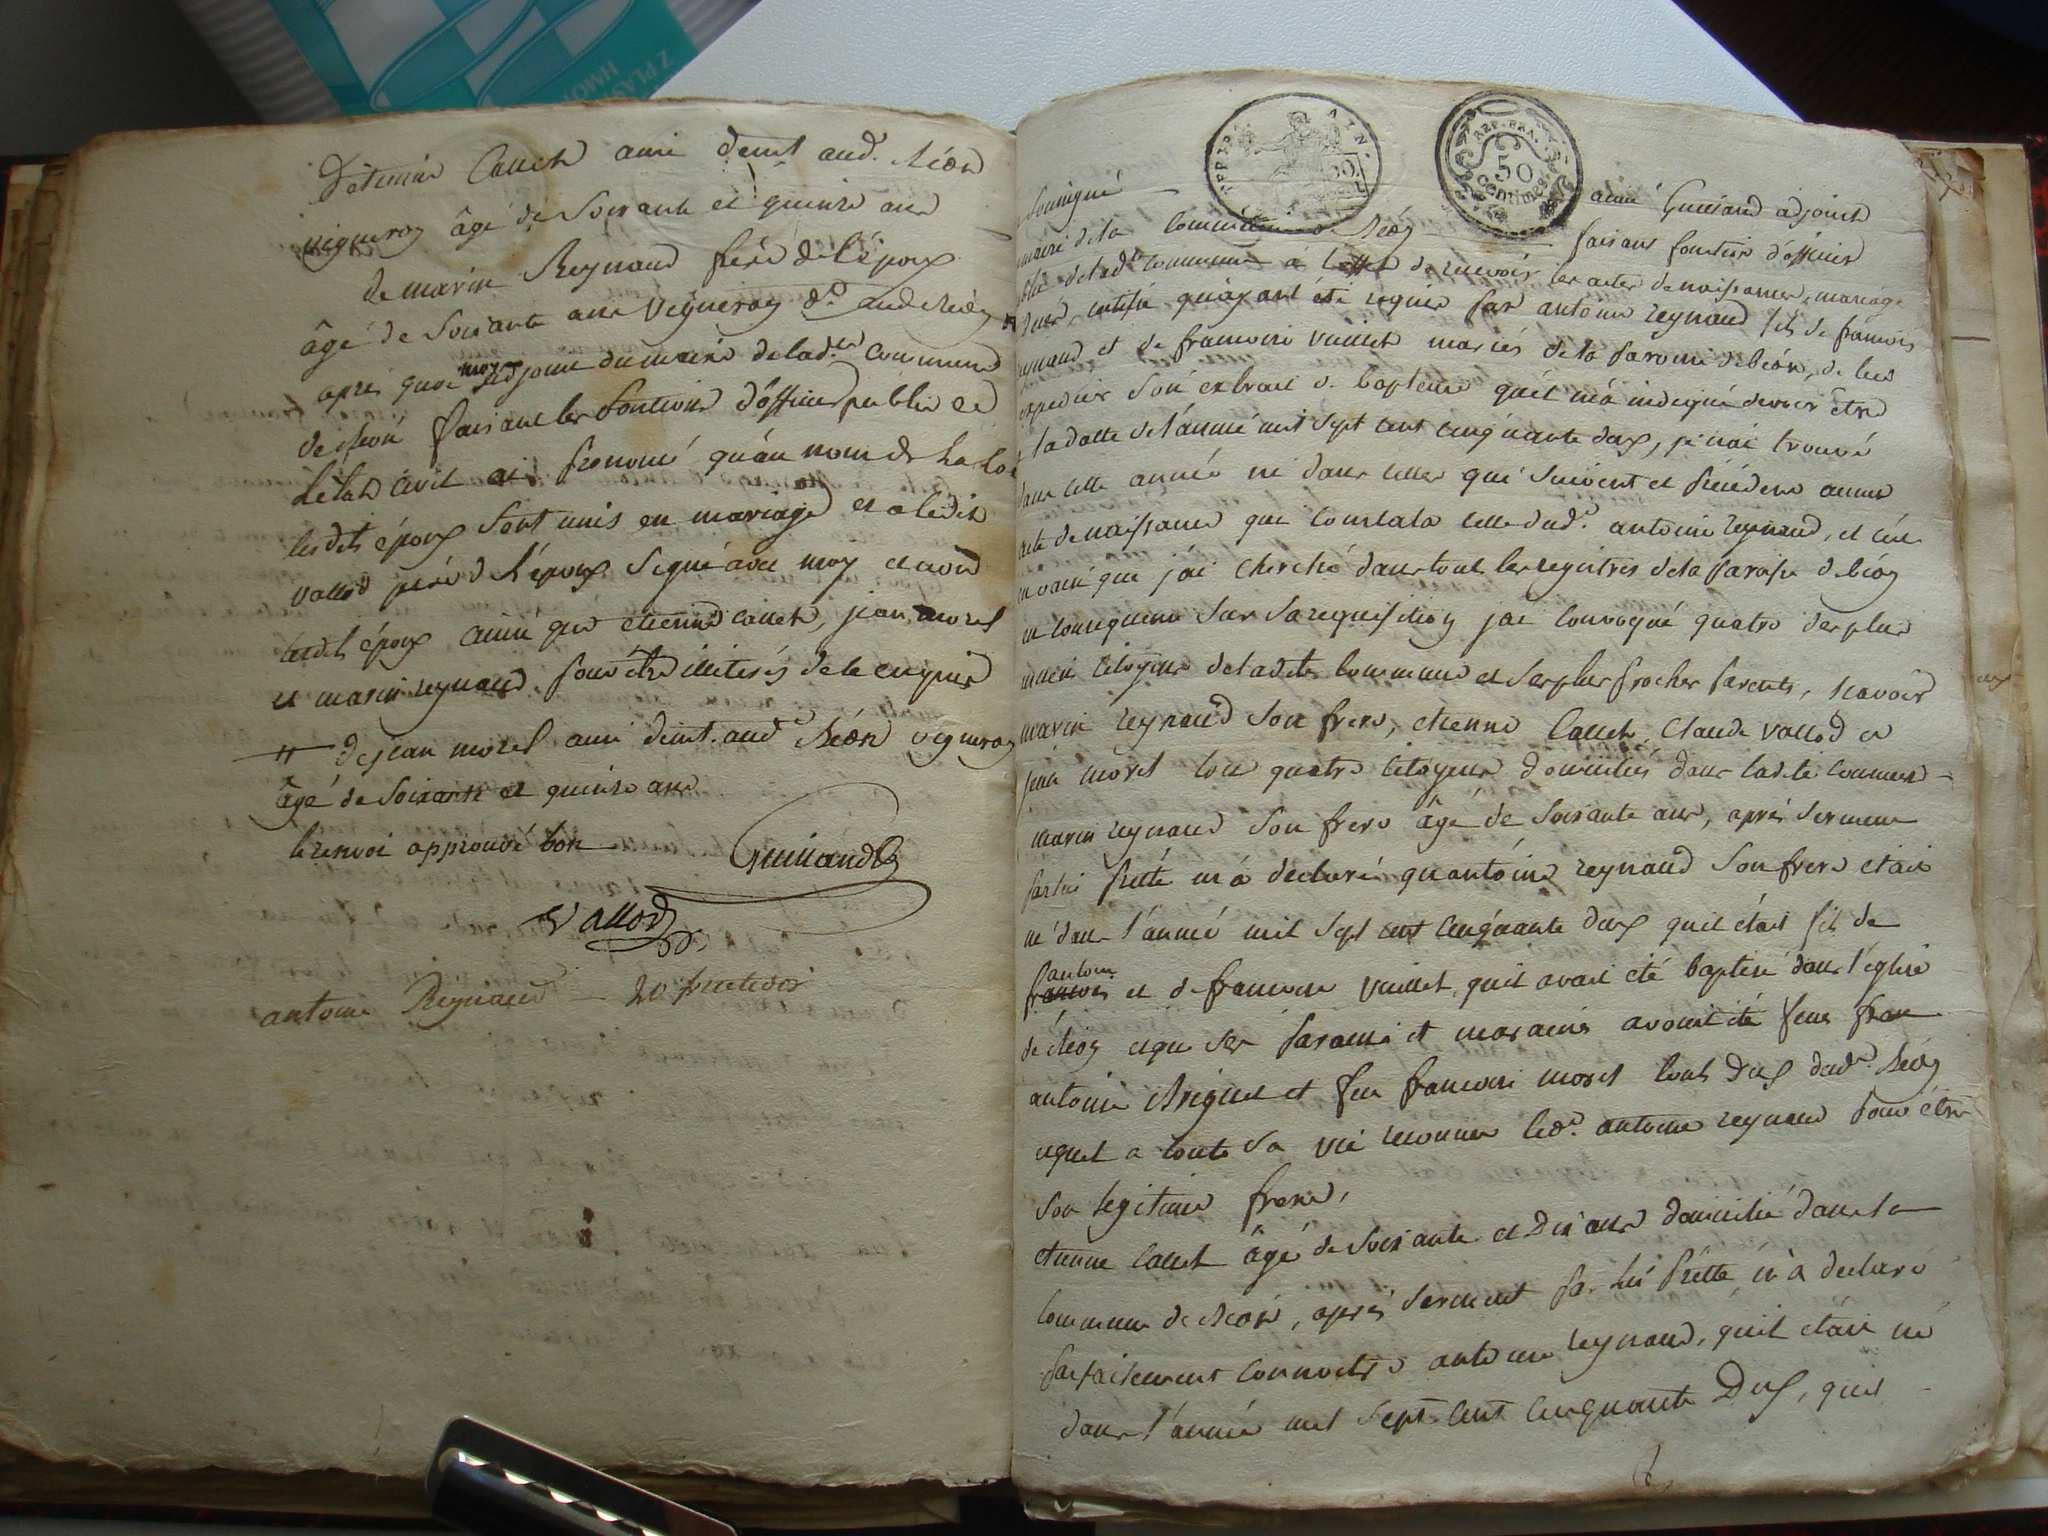 D'etienne Callet ami demt aud. Béon
vigneron âgé de soixante et quinze ans
de marin Reynaud frère de l'époux
âgé de soixante ans vigneron dt aud Béon
après quoi moy adjoint du maire de lade commune
de Béon faisant les fonctions d'officier public de
l'état civil ai prononcé qu'au nom de la loi
lesdits époux sont unis en mariage et a ledit
vallod père de l'épouse signé avec moy et non
lesdits époux ainsi que etienne Callet, jean morel
et marin reynaud pour être illiterés de ce enquis
# de jean morel ami demt. aud Béon vigneron
âgé de soixante et quinze ans
le renvoi approuvé bon
Guillaud
Vallod
antoine Reynaud 20
APN.
REP. FRA.
50
centimes
soussigné aimé Guillaud adjoint
maire de la commune de Béon faisant fonction d'officier
de lade commune à l'effet de recevoir les actes de naissances, mariage
certifie qu'ayant été requis par antoine reynaud fils de francois
et de francoise vuillet mariés de la paroisse de béon, de lui
expedier son extrait de baptême qu'il m'a indiqué devoir être
la datte de l'année mil sept cent cinquante deux, je n'ai trouvé
dans cette année ni dans celles qui suivent et précédent aucun
acte de naissance que constata celle dudt. antoine reynaud, et c'est
en vain que j'ai cherché dans tout les registres de la paroisse de béon
en consequence sur sa requisition j'ai convoqué quatre des plus
anciens citoyens de ladite commune et ses plus proches parents, scavoir
marin reynaud son frere, etienne Callet, Claude vallod et
jean morel tou quatre citoyens domiciliés dans ladite commune
marin reynaud son frere âgé de soixante ans, après serment
par lui prêté m'a déclaré qu'antoine reynaud son frere était
né dans l'année mil sept cent cinquante deux qu'il était fils de
antoine
francois et de francoise vuillet, qu'il avait été baptisé dans l'église
de Béon et que ses parain et maraine avoient été feus
antoine et feu francoise morel tous deux dudt. Béon
et qu'il a toute sa vie reconnu ledt. antoine reynaud pour être
son legitime frere,
etienne Callet âgé de soixante et dix ans domicilié dans la
commune de Béon, après serment par lui prêté, m'a déclaré
parfaitement connoitre antoine reynaud, qu'il était né
dans l'année mil sept cent cinquante deux, qu'il